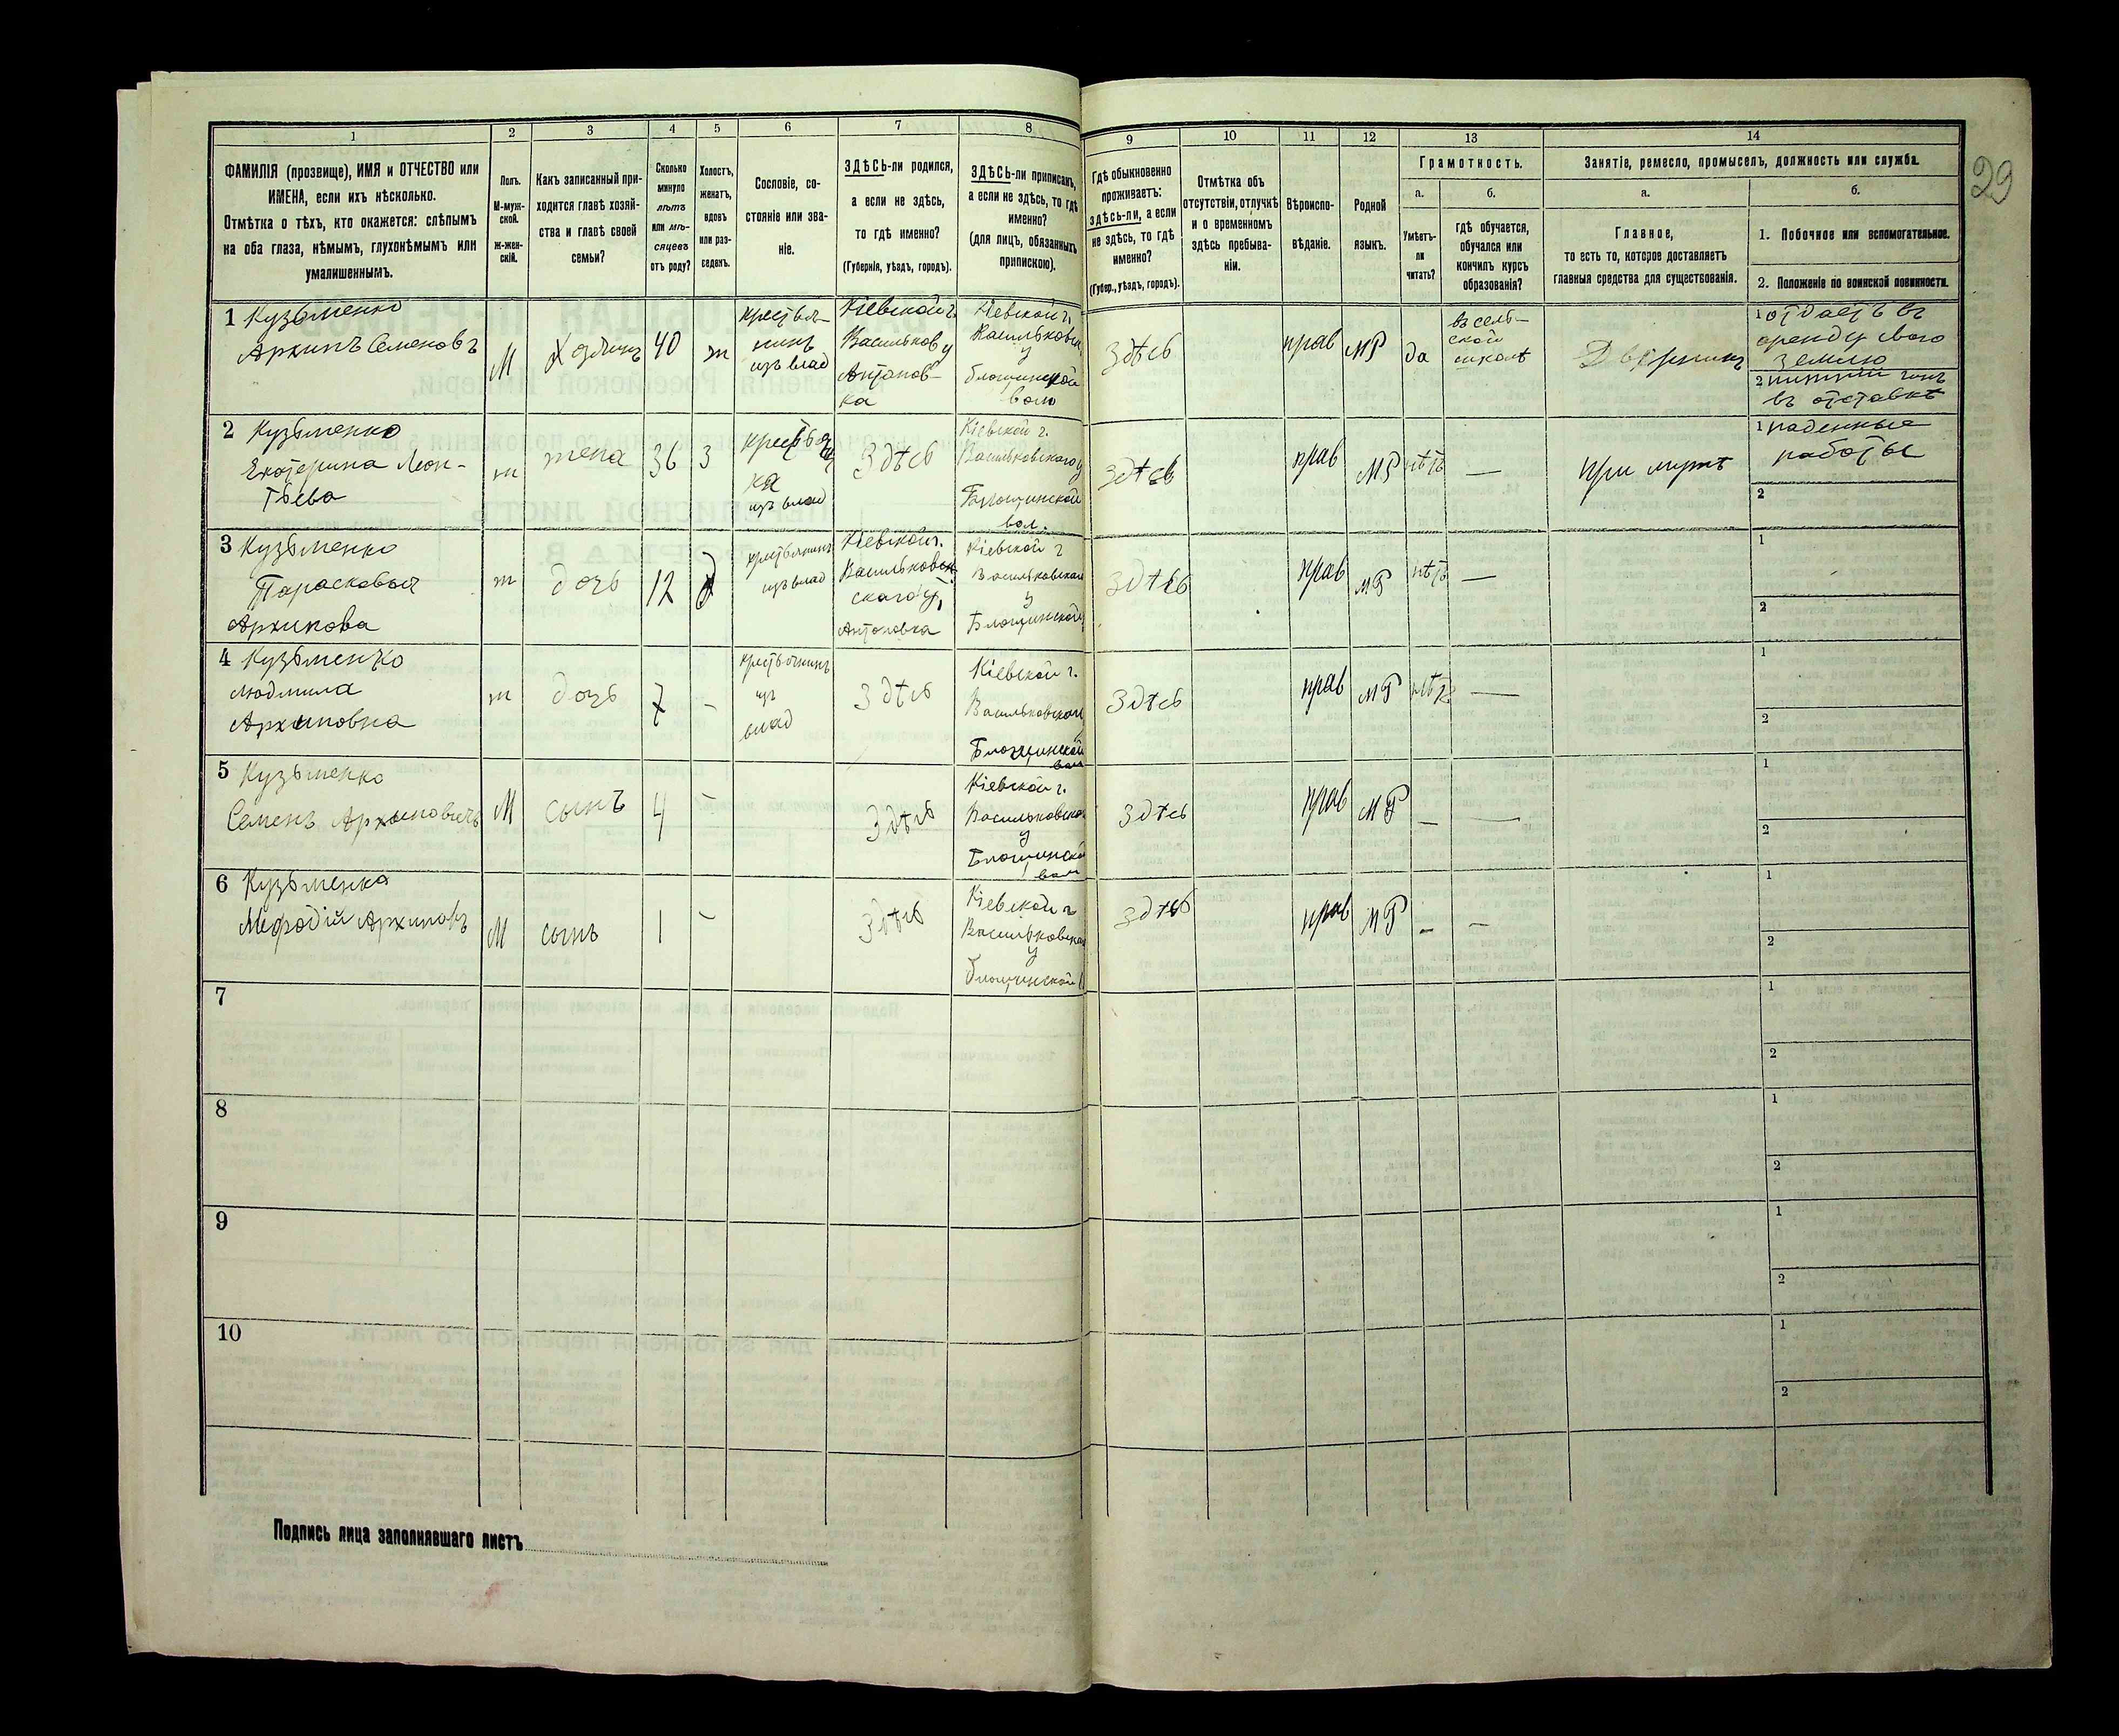 29
1 2 3 4 5 6 7 8 9 10 11 12 13 14
ФАМИЛІЯ (прозвище), ИМЯ и ОТЧЕСТВО или
ИМЕНА, если ихъ нѣсколько.
Отмѣтка о тѣхъ, кто окажется: слѣпымъ
на оба глаза, нѣмымъ, глухонѣмымъ или
умалишеннымъ.
Полъ.
М-муж-
ской.
Ж-жен-
скій.
Какъ записанный при-
ходится главѣ хозяй-
ства и главѣ своей
семьи?
Сколько
минуло
лѣтъ
или мѣ-
сяцевъ
отъ роду?
Холостъ,
женатъ,
вдовъ
или раз-
веденъ.
Сословіе, со-
стояніе или зва-
ніе.
ЗДѢСЬ-ли родился,
а если не здѣсь,
то гдѣ именно?
(Губернія, уѣздъ, городъ).
ЗДѢСЬ-ли приписанъ,
а если не здѣсь, то гдѣ
именно?
(для лицъ, обязанныхъ
припискою).
Гдѣ обыкновенно
проживаетъ:
здѣсь-ли, а если
не здѣсь, то гдѣ
именно?
(Губер., уѣздъ, городъ).
Отмѣтка объ
отсутствіи, отлучкѣ
и о временномъ
здѣсь пребыва-
ніи.
Вѣроиспо-
вѣданіе.
Родной
языкъ.
Грамотность.
а.
Умѣетъ-
ли
читать?
б.
гдѣ обучается,
обучался или
кончилъ курсъ
образованія?
Занятіе, ремесло, промыселъ, должность или служба.
а.
Главное,
то есть то, которое доставляетъ
главныя средства для существованія.
б.
1. Побочное или вспомогательное.
2. Положеніе по воинской повинности.
1 Кузьменко
Архипъ Семеновъ
М
хозяинъ
40
ж
крестья-
нинъ
изъ влад
Кіевской г.
Васильков у
Антонов-
ка
Кіевской г.
Васильковск
у
блощинской
воло
Здѣсь
прав
МР
да
въ сель-
ской
школѣ
Дворникъ
1 отдаетъ въ
аренду свою
землю
2 нижній чинъ
въ отставкѣ
2 Кузьменко
Екатерина Леон-
тьева
ж
жена
36
З
крестья
ка
изъ влад
Здѣсь
Кіевской г.
Васильковского у
Блощинской
вол.
Здѣсь
прав
МР
нѣтъ
—
при мужѣ
1 паденные
работы
2
3 Кузьменко
Парасковья
Архипова
ж
дочь
12
крестьянинъ
изъ влад
Кіевской г.
Васильков
ского у,
Антоновка
Кіевской г
Васильковскаго
у
Блощинской
Здѣсь
прав
МР
нѣтъ
—
1
2
4 Кузьменко
Людмила
Архиповна
ж
дочь
7
-
крестьянинъ
изъ
влад
Здѣсь
Кіевской г.
Васильковскаго
Блощинской
вол
Здѣсь
прав
МР
нѣтъ
—
1
2
5 Кузьменко
Семенъ Архиповичъ
М
сынъ
4
-
Здѣсь
Кіевской г.
Васильковска
у
Блощинской
вол
Здѣсь
прав
МР
—
—
1
2
6 Кузьменка
Мефодій Архиповъ
М
сынъ
1
-
Здѣсь
Кіевской г
Васильковска
у
блощинской
Здѣсь
прав
МР
—
—
1
2
7
1
2
8
1
2
9
1
2
10
1
2
Подпись лица заполнявшаго листъ